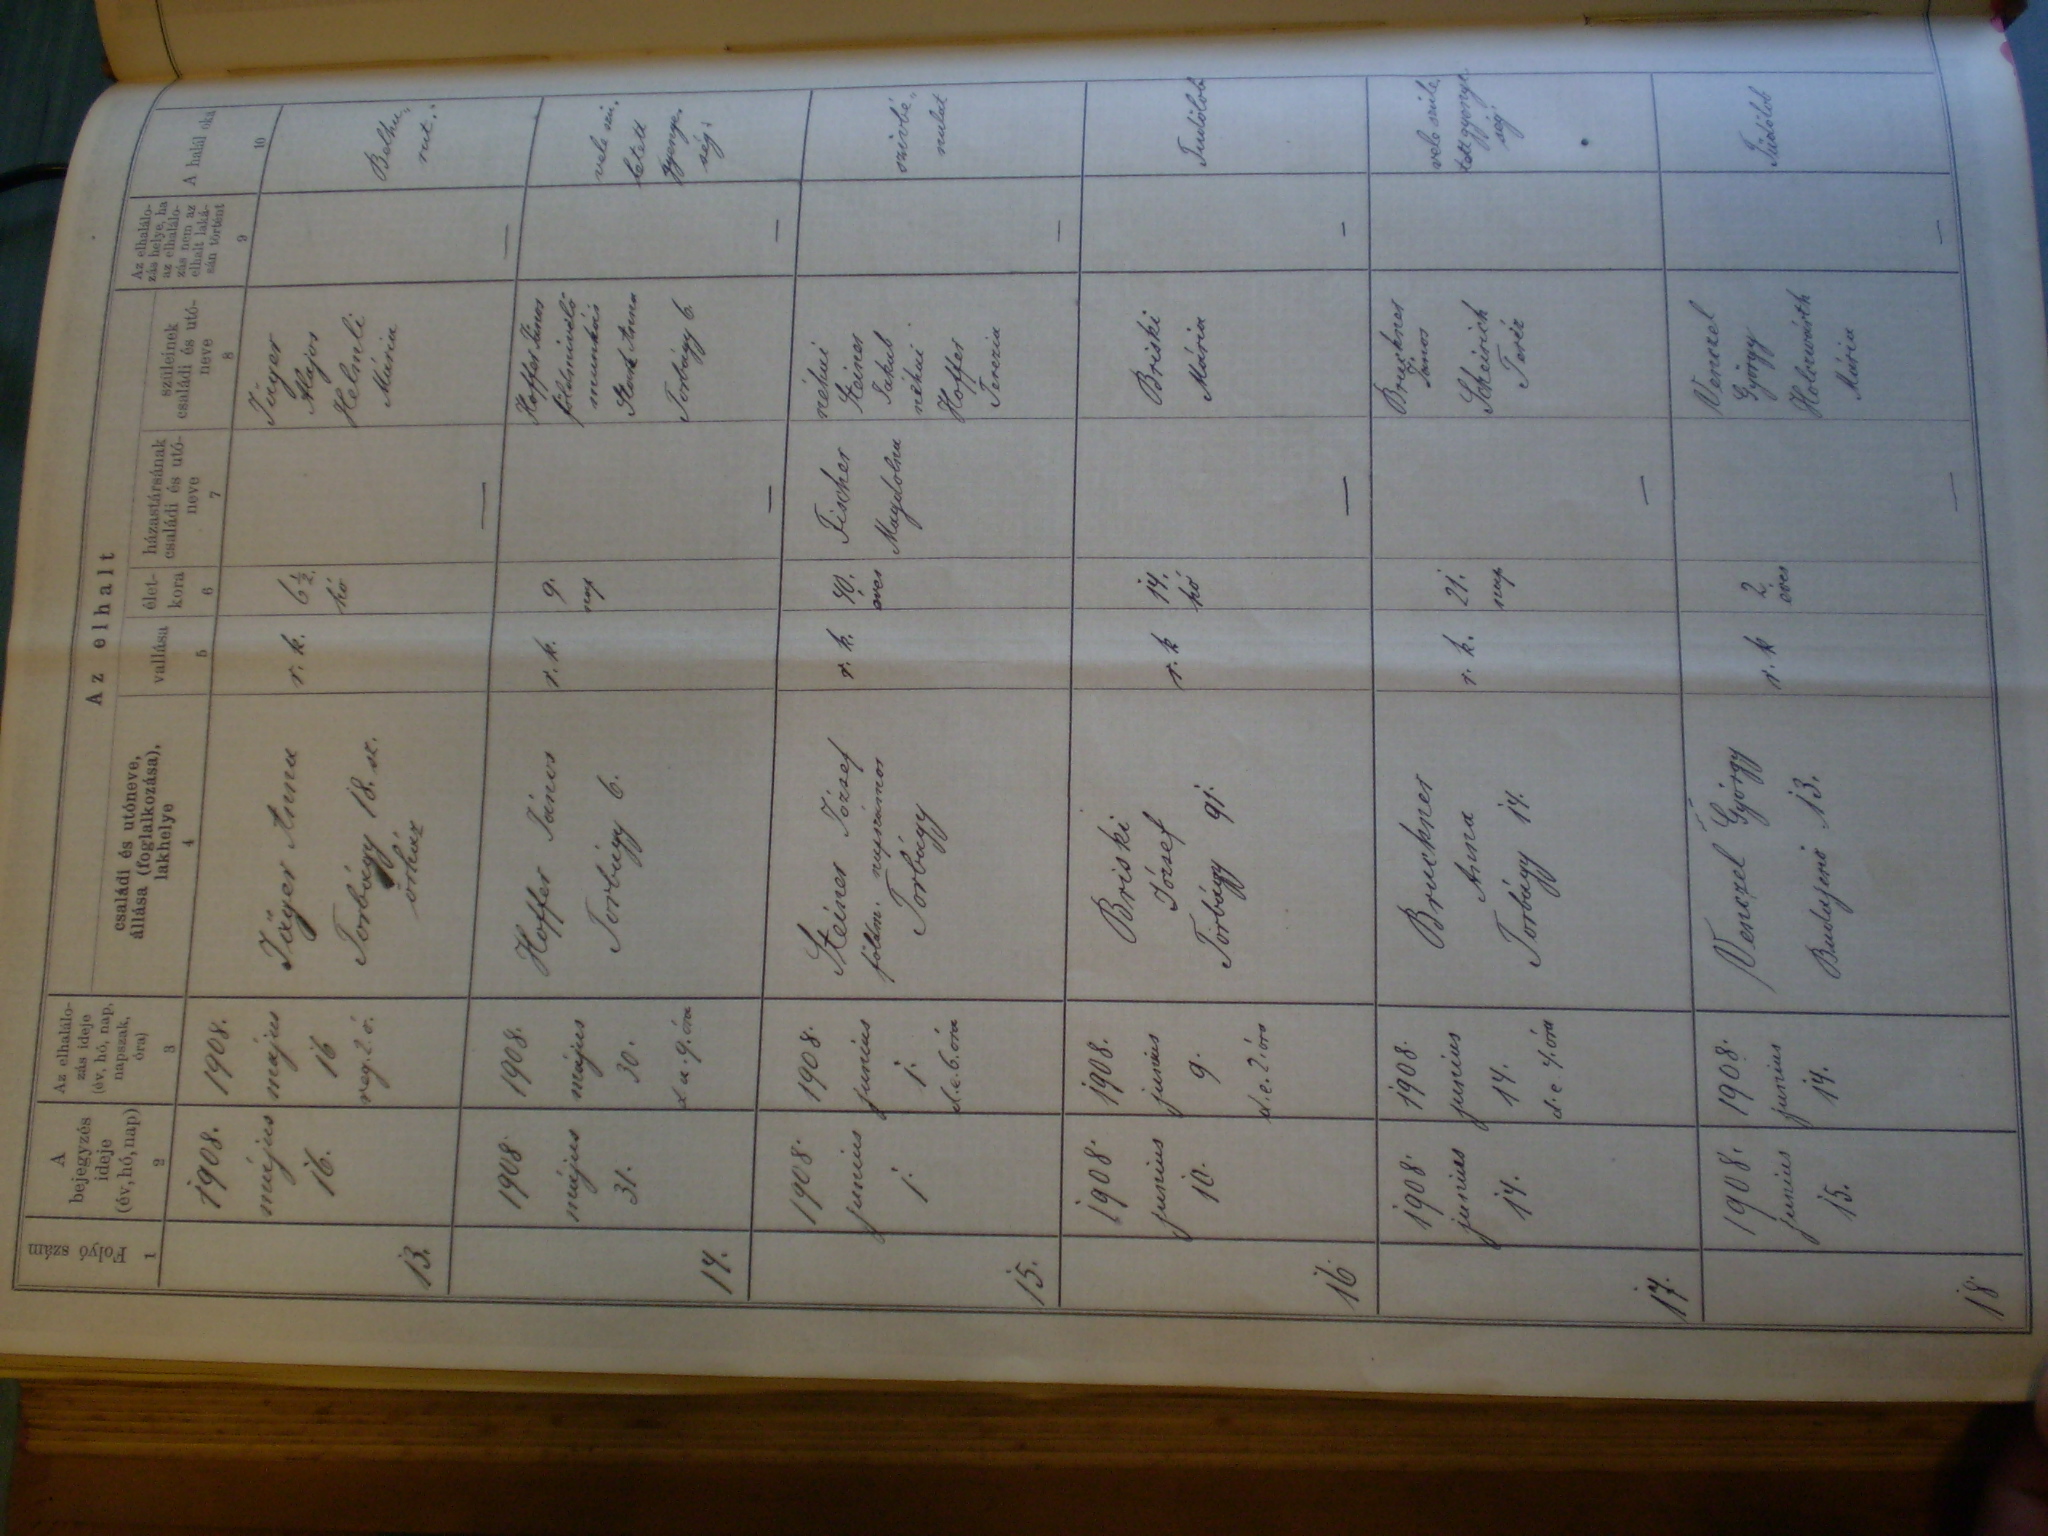 Az elhalt
Folyó szám
A bejegyzés ideje (év, hó, nap)
Az elhalálo-
zás ideje
(év, hó, nap,
napszak,
óra)
családi és utóneve,
állása (foglalkozása),
lakhelye
vallása
élet-
kora
házastársának
családi és utó-
neve
szüleinek
családi és utó-
neve
Az elhalálo-
zás helye, ha
az elhalálo-
zás nem az
elhalt laká-
sán történt
A halál oka
1 2 3 4 5 6 7 8 9 10
13.
1908.
május
16.
1908.
május
16
reg. 2. ó.
Jäger Anna
Torbágy 18. sz.
őrház
r. k.
6 1/2
hó
—
Jäger
Alajos
Helnli
Mária
—
Bélhu-
rut.
14.
1908
május
31.
1908.
május
30.
d. u. 9. óra
Hoffer János
Torbágy 6.
r. k.
9.
nap
—
Hoffer János
földmivelő
munkás
Stark Anna
Torbágy 6.
—
vele szü-
letett
gyenge-
ség.
15.
1908.
junius
1.
1908.
junius
1.
d. e. 6. óra
Steiner József
földm. napszámos
Torbágy
r. k.
40.
éves
Fischer
Magdolna
néhai
Steiner
Jakab
néhai
Hoffer
Terezia
—
szivbé-
nulás
16.
1908.
junius
10.
1908.
junius
9.
d. e. 2. óra
Briski
József
Torbágy 91.
r. k
14.
hó
—
Briski
Mária
—
Tüdőlob
17.
1908.
junius
14.
1908.
junius
14.
d. e. 4. óra
Bruckner
Anna
Torbágy 14.
r. k.
21.
nap
—
Bruckner
János
Scheirich
Teréz
—
vele szüle-
tett gyenge-
ség
18.
1908.
junius
15.
1908.
junius
14.
Venczel György
Budajenő 13.
r. k
2.
éves
—
Venczel
György
Mária
—
Tüdőlob